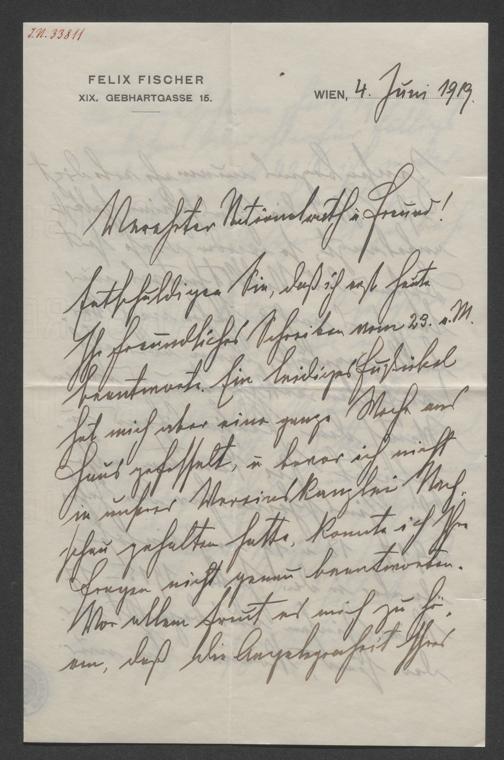 I.N. 33811
FELIX FISCHER
XIX. GEBHARTGASSE 15.
WIEN, 4. Juni 1919.
Verehrter Nationalrath u Freund!
Entschuldigen Sie, daß ich erst heute
Ihr freundliches Schreiben vom 23. v. M.
beantworte. Ein leidiges Fußübel
hat mich aber eine ganze Woche ans
Haus gefesselt, u bevor ich nicht
in unserer Vereinskanzlei Nach-
schau gehalten hatte, konnte ich Ihre
Fragen nicht genau beantworten.
Vor allem freut es mich zu hö-
ren, daß die Angelegenheit Ihres